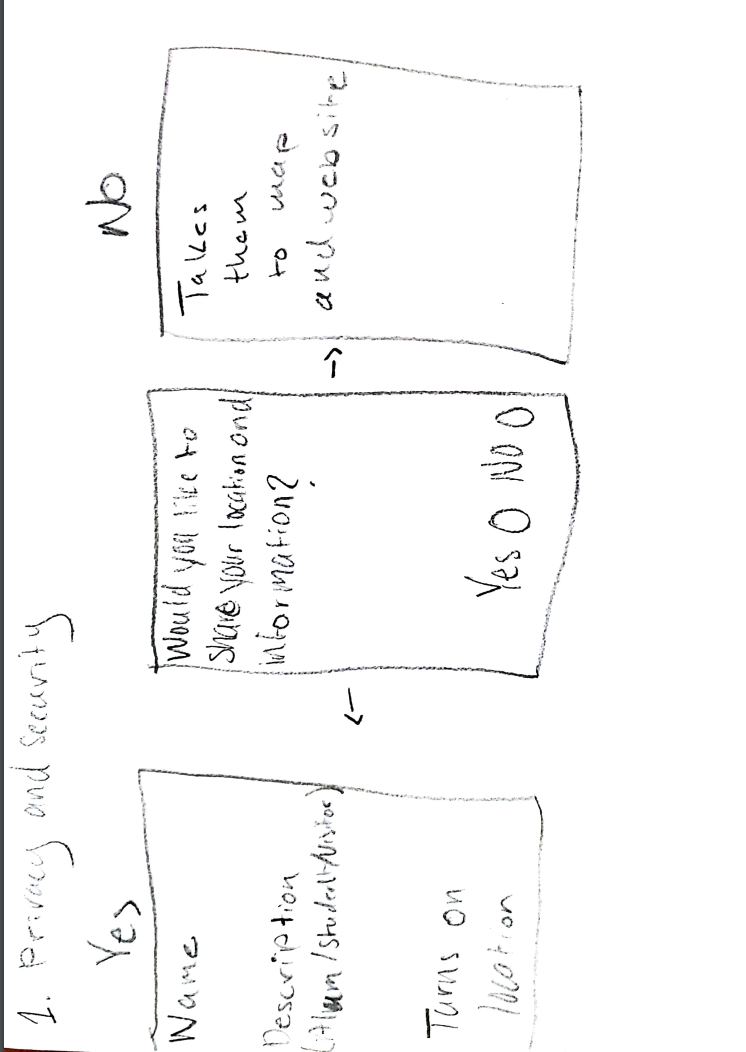 1. Privacy and Security
Yes
Name
Description
(Alum/Student/Visitor)
Turns on
location
Would you like to
share your location and
information?
Yes O No O
No
Takes
them
to map
and website